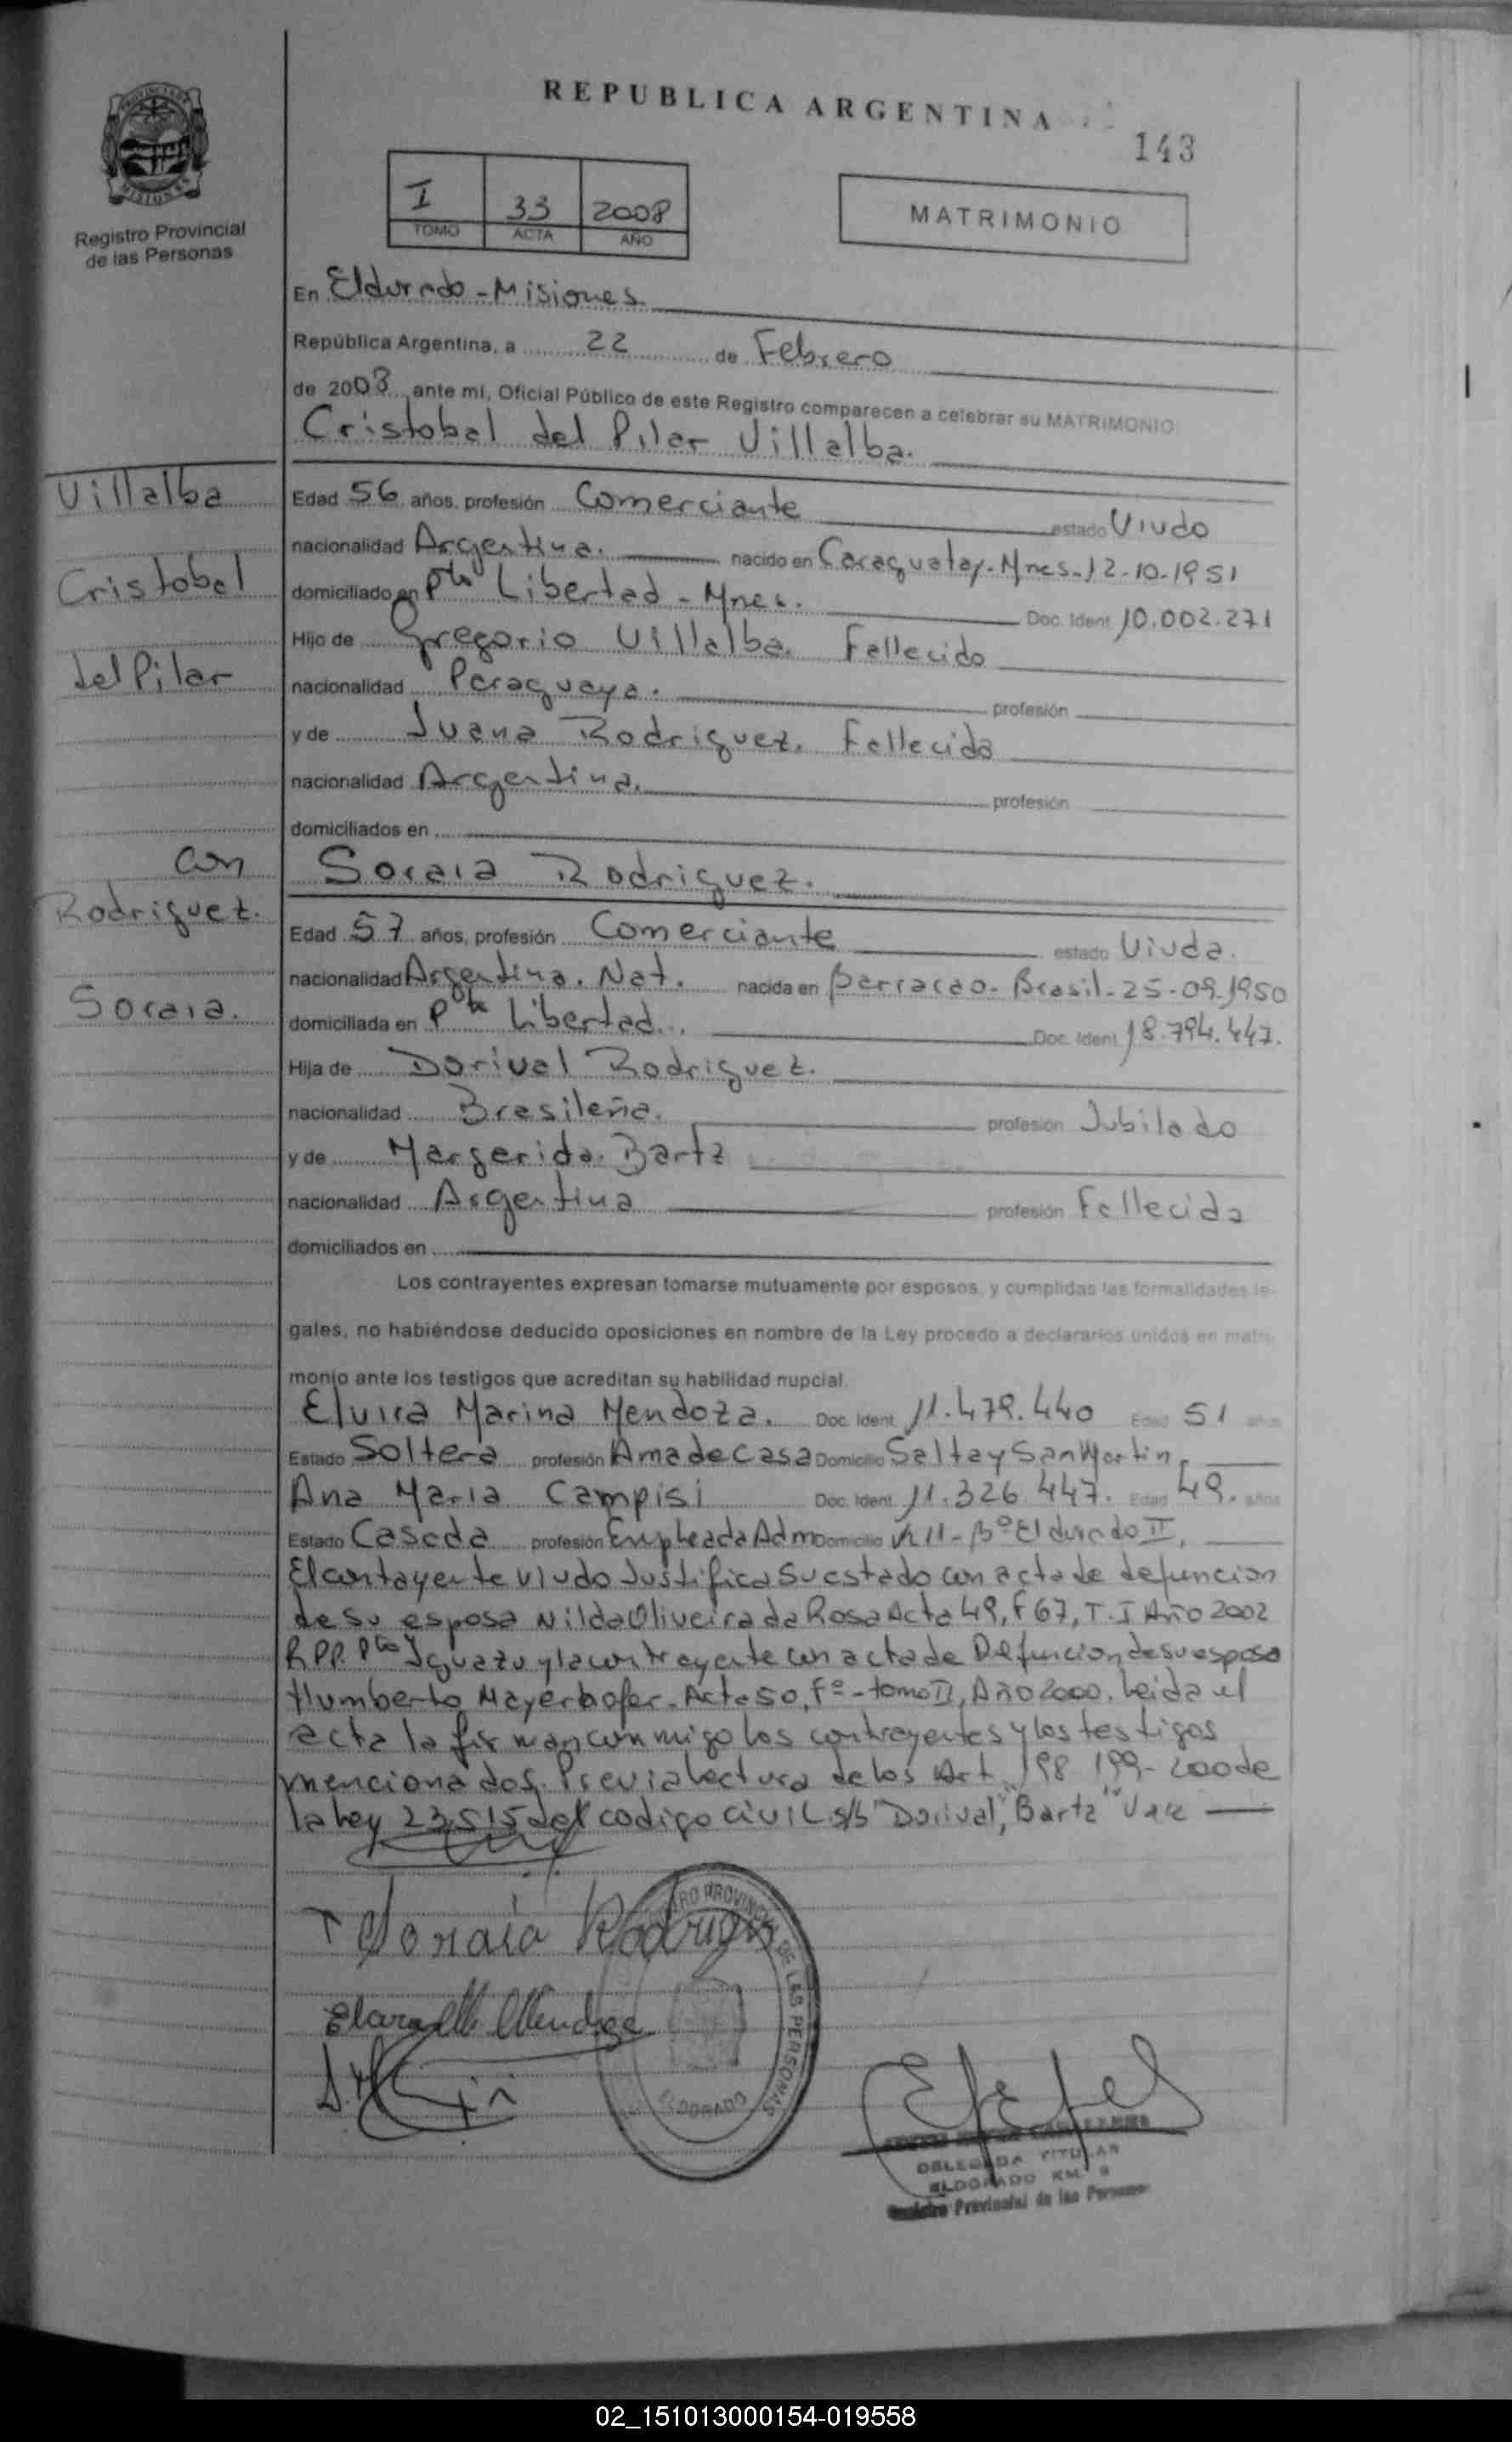 REPUBLICA ARGENTINA
143
PROVINCIA DE MISIONES
Registro Provincial
de las Personas
I 33 2008
TOMO ACTA AÑO
MATRIMONIO
En Eldorado - Misiones
República Argentina, a 22 de Febrero
de 2008 ante mi, Oficial Público de este Registro comparecen a celebrar su MATRIMONIO
Cristobal del Pilar Villalba.
Villalba
Cristobal
del Pilar
con
Rodriguez.
Soraia.
Edad 56 años, profesión Comerciante estado Viudo
nacionalidad Argentina. nacido en Caraguatay-Mnes-12-10-1951
domiciliado en Pto Libertad - Mnes. Doc. Ident. 10.002.271
Hijo de Gregorio Villalba. Fallecido
nacionalidad Paraguaya. profesión
y de Juana Rodriguez. Fallecida
nacionalidad Argentina. profesión
domiciliados en
Soraia Rodriguez.
Edad 57 años, profesión Comerciante estado Viuda.
nacionalidad Argentina. Nat. nacida en Barracao-Brasil-25-09-1950
domiciliada en Pto Libertad. Doc. Ident. 18.794.447.
Hija de Dorival Rodriguez.
nacionalidad Brasileña. profesión Jubilado
y de Margarida. Bartz
nacionalidad Argentina profesión Fallecida
domiciliados en
Los contrayentes expresan tomarse mutuamente por esposos, y cumplidas las formalidades le-
gales, no habiéndose deducido oposiciones en nombre de la Ley procedo a declararlos unidos en matri-
monio ante los testigos que acreditan su habilidad nupcial.
Elvira Marina Mendoza. Doc. Ident. 11.479.440 Edad 51 años
Estado Soltera profesión Ama de Casa Domicilio Salta y San Martin,
Ana Maria Campisi Doc. Ident. 11.326.447. Edad 49. años
Estado Casada profesión Empleada Adm Domicilio K 11 - Bº Eldorado II,
El contayente viudo Justifica su estado con acta de defuncion
de su esposa Nilda Oliveira da Rosa Acta 49, F 67, T. I Año 2002
RPP. Pto Iguazu y la contrayente con acta de Defuncion de su esposo
Humberto Mayerhofer. Acta 50, Fº - tomo II, Año 2000. Leida el
acta la firman conmigo los contrayentes y los testigos
mencionados. Previa lectura de los Art. 198 199-200 de
la Ley 23.515 del codigo civil s/b "Dorival", "Bartz" Vale
Soraia Rodriguez
Mendoza
REGISTRO PROVINCIAL DE LAS PERSONAS
ELDORADO
DELEGADA TITULAR
ELDORADO KM. 9
Registro Provincial de las Personas
02_151013000154-019558